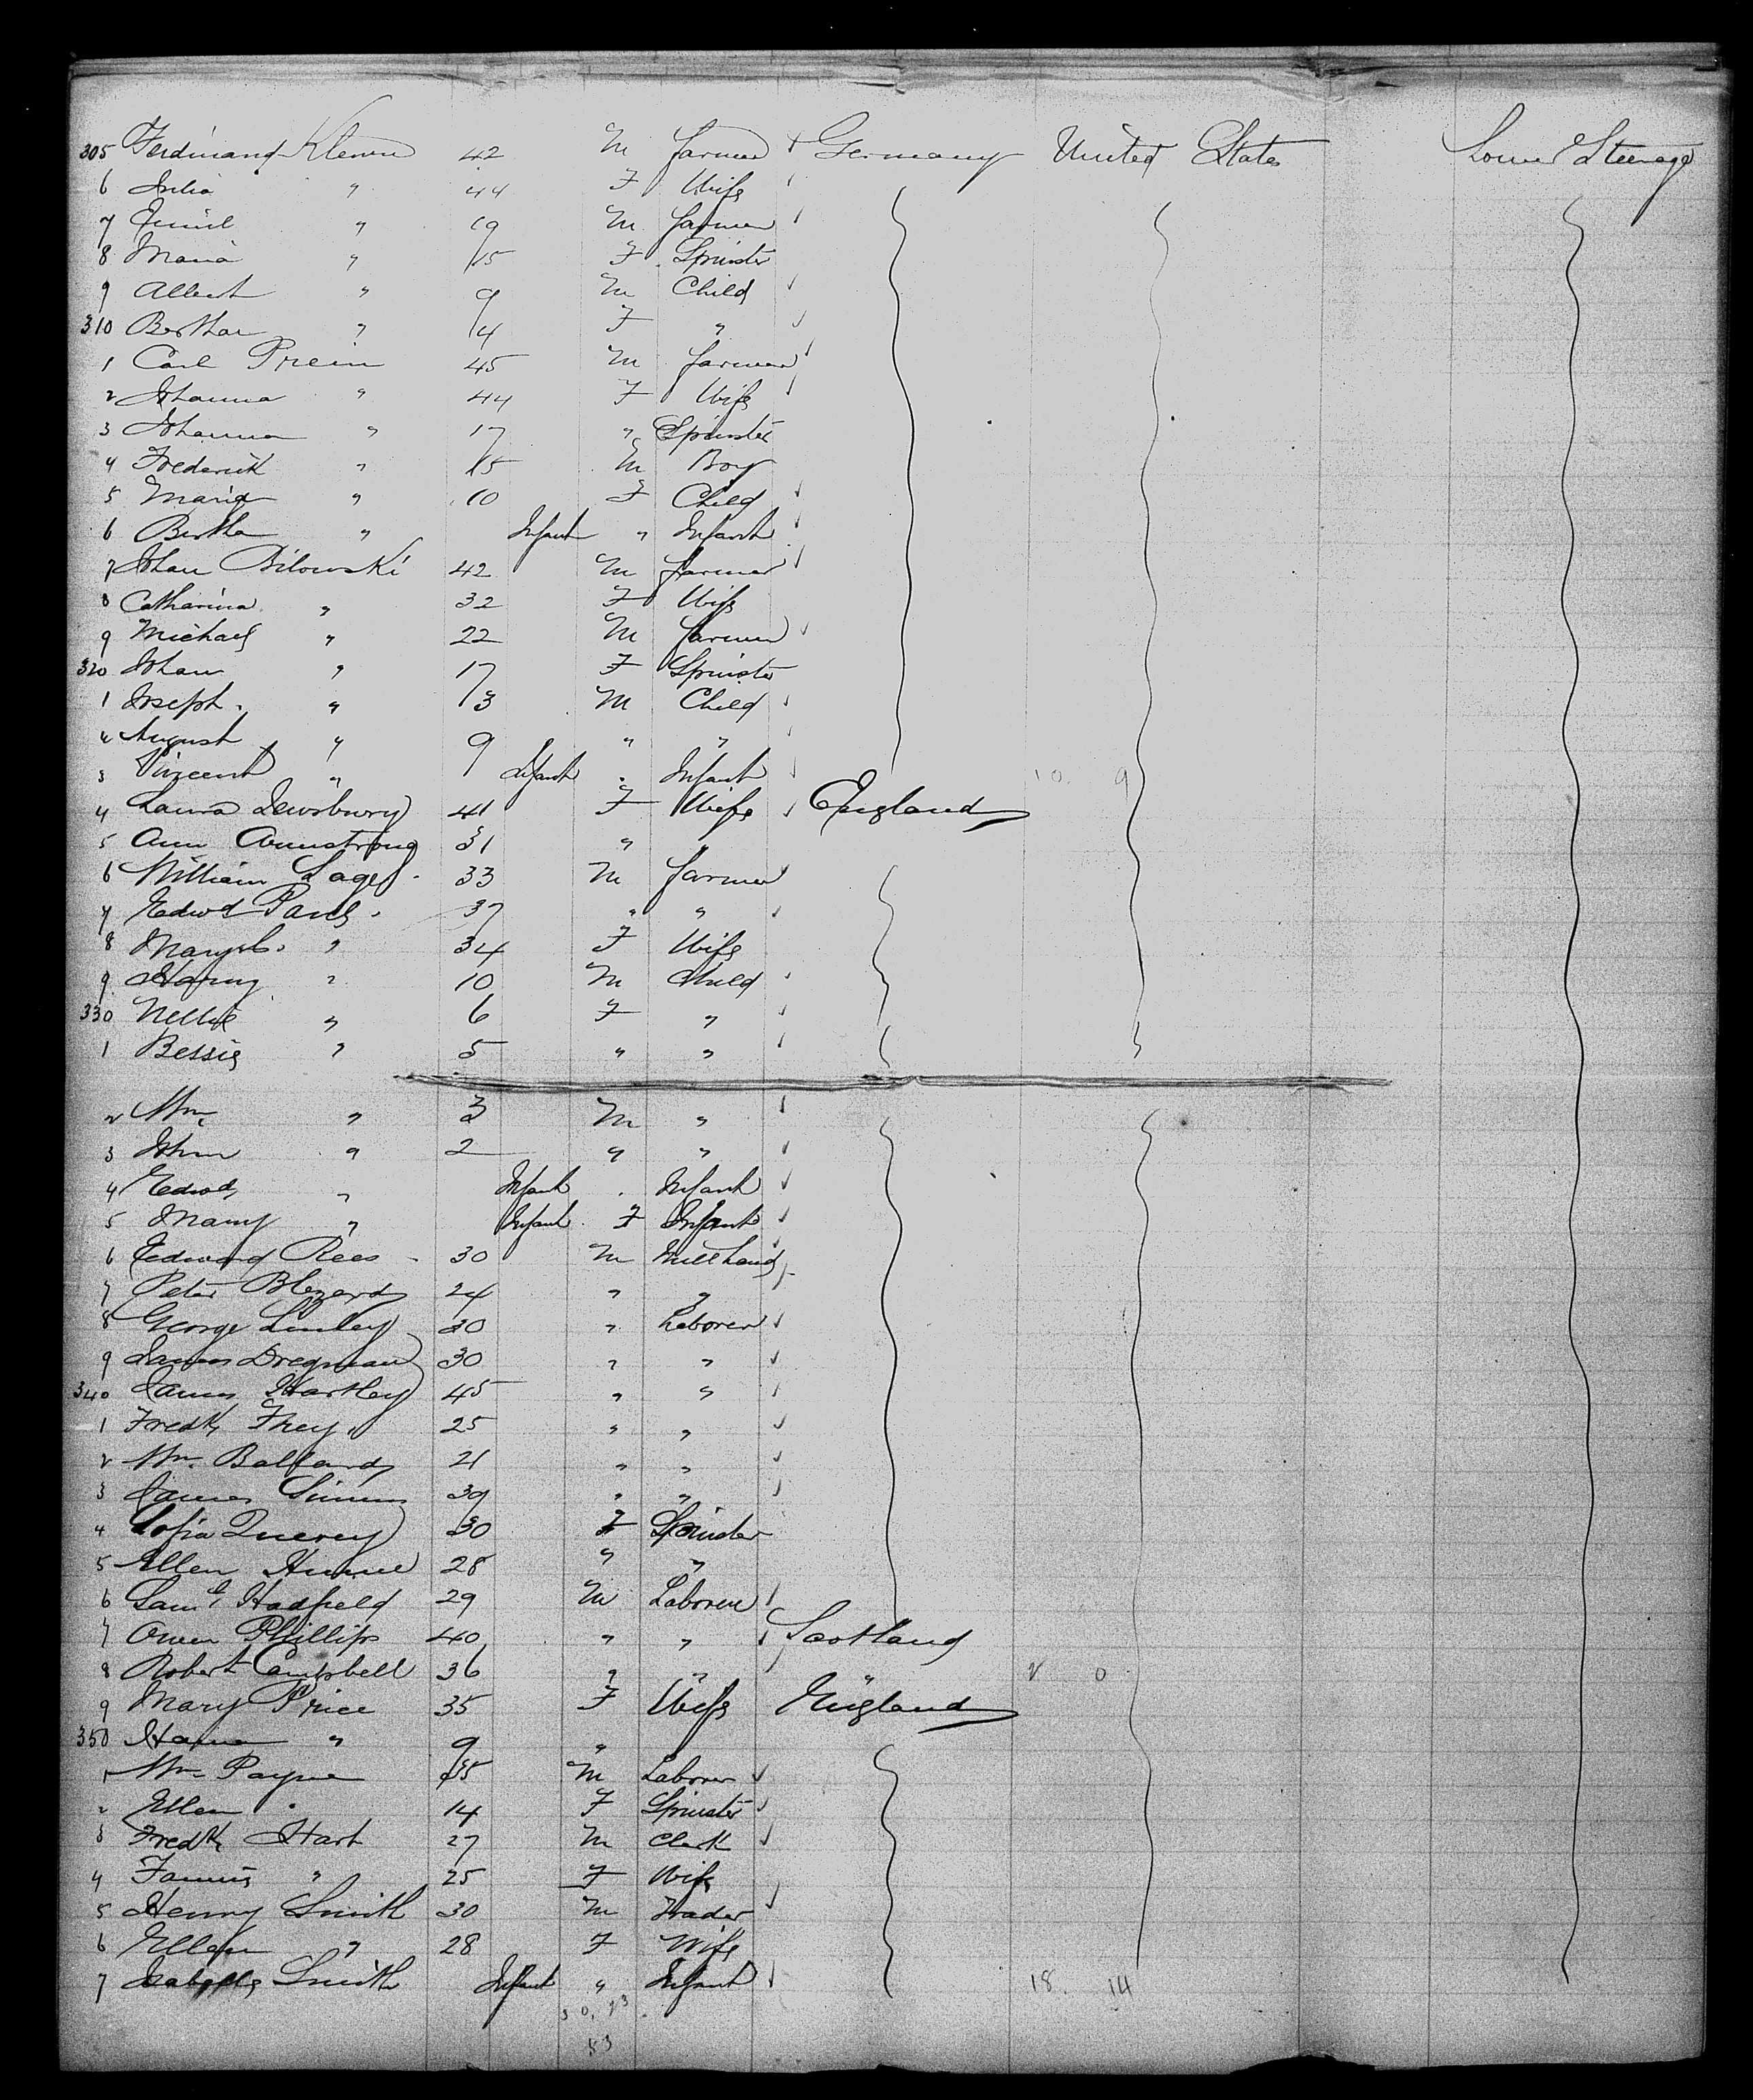 305 Ferdinand Klewin 42 M Farmer Germany United States Lower Steerage
6 Julia " 44 F Wife
7 Emil " 19 M Farmer
8 Maria " 15 F Spinster
9 Albert " 9 M Child
310 Bertha " 4 F "
1 Carl Preim 45 M Farmer
2 Johanna " 44 F Wife
3 Johanna " 17 " Spinster
4 Frederick " 15 M Boy
5 Maria " 10 F Child
6 Bertha " Infant " Infant
7 Johan Bilowski 42 M Farmer
8 Catharina " 32 F Wife
9 Michael " 22 M Farmer
320 Johan " 17 F Spinster
1 Joseph " 13 M Child
2 August " 9 " "
3 Vincent " Infant " Infant 10. 9
4 Laura Dewsbury 41 F Wife England
5 Ann Armstrong 31 " "
6 William Lager 33 M Farmer
7 Edwd 37 " "
8 Mary " 34 F Wife
9 Harry " 10 M Child
330 Nellie " 6 F "
1 Bessie " 5 " "
2 Wm " 3 M "
3 John " 2 " "
4 Edwd " Infant " Infant
5 Mary " Infant F Infant
6 Edward Rees 30 M Millhand
7 Peter Blezard 24 " "
8 George Linley 30 " Laborer
9 James Dregman 30 " "
340 James Hartley 45 " "
1 Fredk Frey 25 " "
2 Wm. Ballard 21 " "
3 James Simms 39 " "
4 Sofia Querey 30 F Spinster
5 Ellen Hume 28 " "
6 Saml Hadfield 29 M Laborer
7 Owen Phillips 40 " " Scotland
8 Robert Campbell 36 " " " 2 0
9 Mary Price 35 F Wife England
350 " 9 "
1 Wm Payne 35 M Laborer
2 Ellen " 14 F Spinster
3 Fredk Hart 27 M Clerk
4 Fannie " 25 F Wife
5 Henry Smith 30 M Trader
6 Ellen " 28 F Wife
7 Isabella Smith Infant " Infant 18. 14
30, 23
53